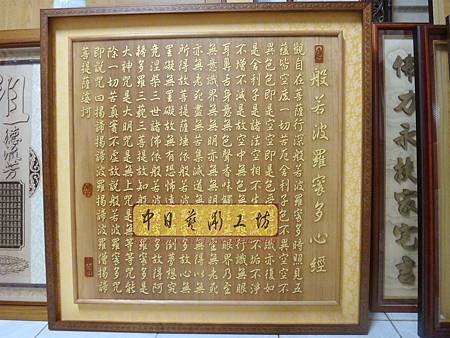 般若波羅蜜多心經
觀自在菩薩行深般若波羅蜜多時照見五
蘊皆空度一切苦厄舍利子色不異空空不
異色色即是空空即是色受識亦復如
是舍利子是諸法空相不生不垢不淨
不增不減是故空中無色無行識無眼
耳鼻舌身意無色聲香味觸眼界乃至
無意識界無無明亦無無明無老死
亦無老死盡無苦集滅道無得以無
所得故菩提薩埵依般若波多故心無
罣礙無罣礙故無有恐怖遠倒夢想究
竟涅槃三世諸佛依般若波多故得阿
耨多羅三藐三菩提故知般羅蜜多是
大神咒是大明咒是無上咒是無等等咒能
除一切苦真實不虛故說般若波羅蜜多咒
即說咒曰揭諦揭諦波羅揭諦波羅僧揭諦
菩提薩婆訶
中日藝雕工坊
德流芳
佛力永扶家宅吉